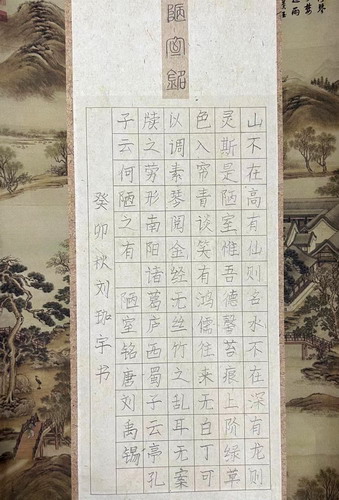 陋室銘
山不在高有仙则名水不在深有龙则
灵斯是陋室惟吾德馨苔痕上阶绿草
色入帘青谈笑有鸿儒往来无白丁可
以调素琴阅金经无丝竹之乱耳无案
牍之劳形南阳诸葛庐西蜀子云亭孔
子云何陋之有 陋室铭唐刘禹锡
癸卯秋刘珈宇书